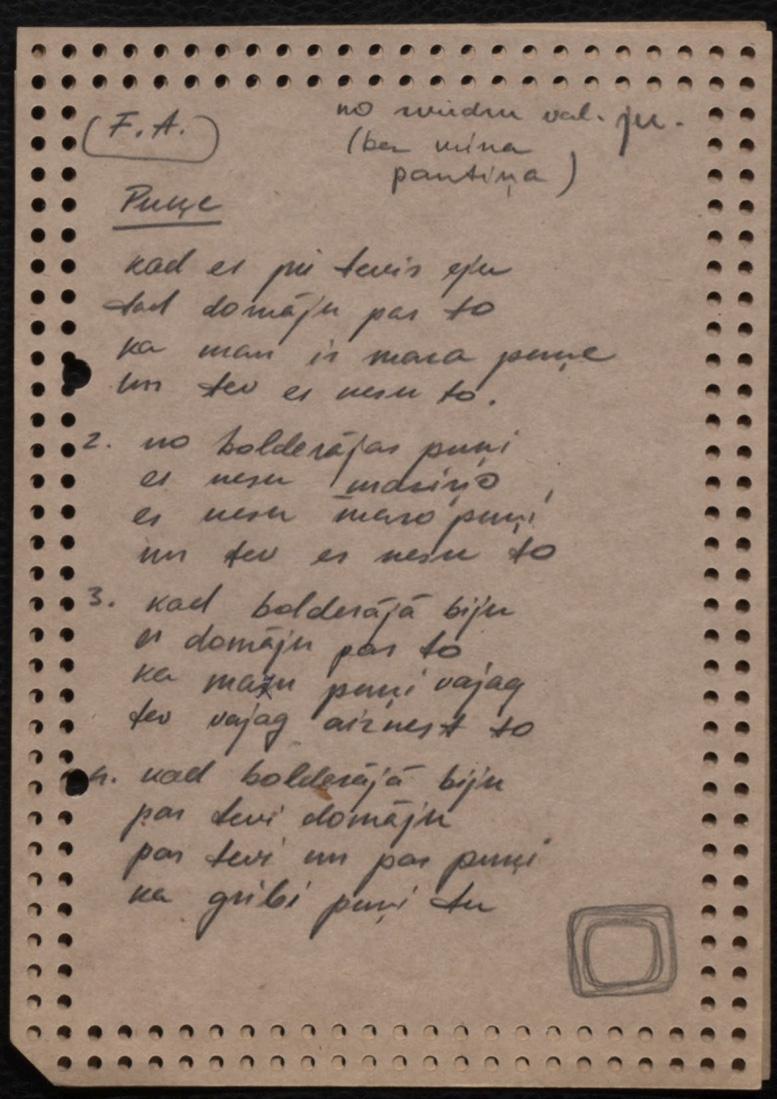 (F.A.)
no val. ju.
(bez viņa
pantiņa)
Puņķe
kad es pie tevis eju
tad domāju par to
ka man ir maza puņķe
un tev es nesu to.
2. no bolderājas puņķi
es nesu maziņo
es nesu mazo puņķi
un tev es nesu to
3. kad bolderājā biju
es domāju par to
ka mazu puņķi vajag
tev vajag aiznest to
4. kad bolderājā biju
par tevi domāju
par tevi un par puņķi
ka gribi puņķi tu